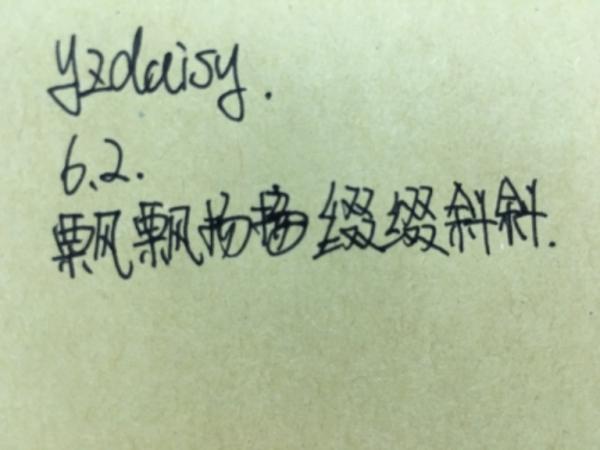 yzdaisy.
6.2.
飘飘扬扬缀缀斜斜.